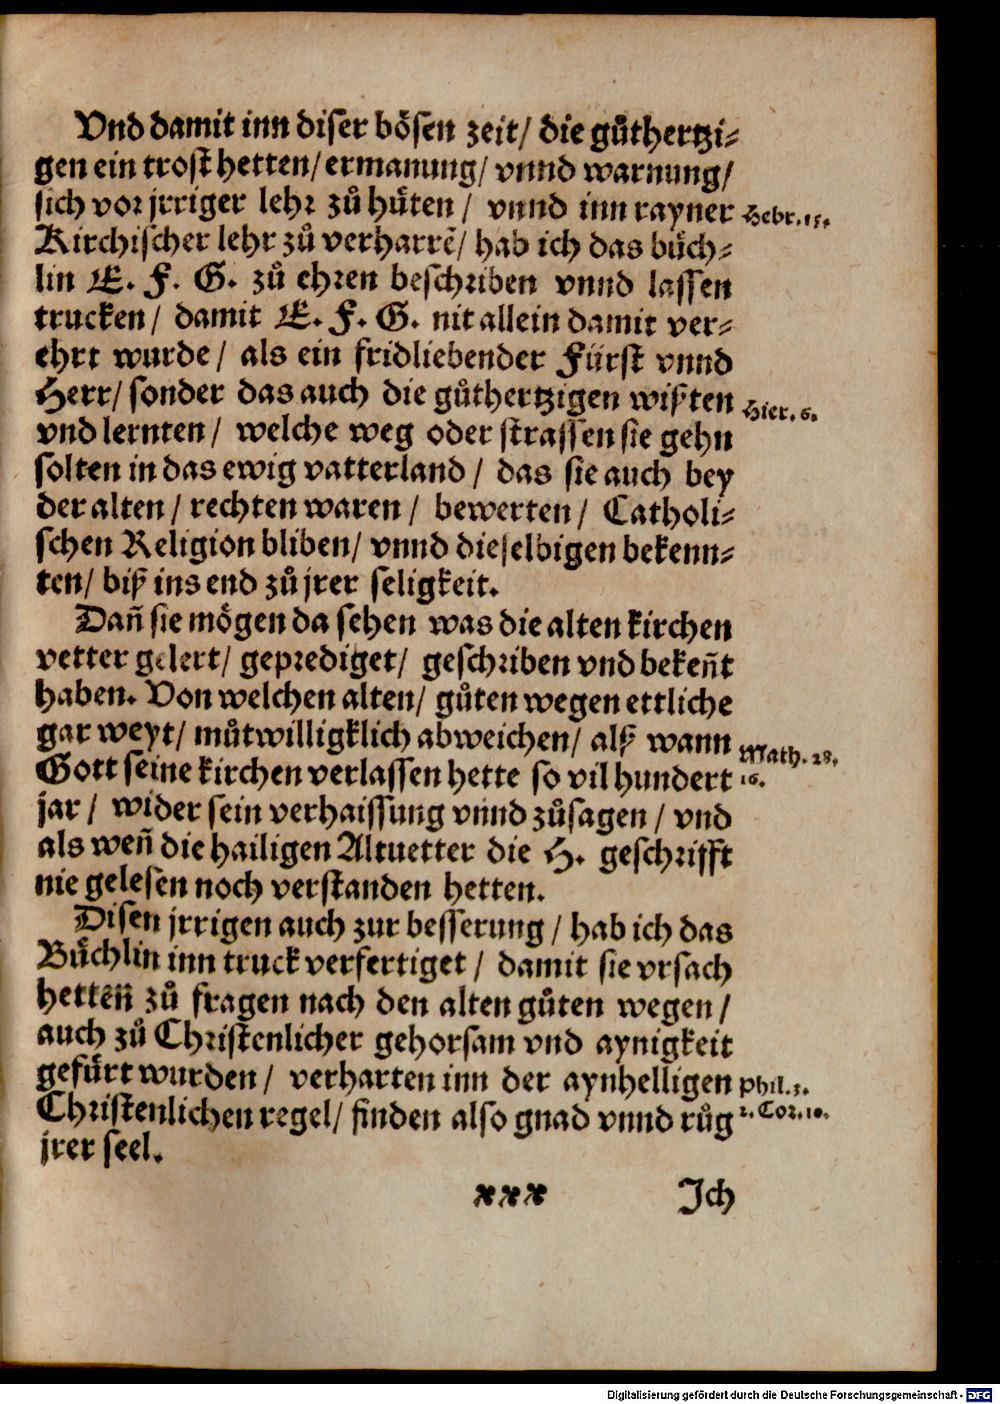 Vnd damit inn diser bösen zeit/ die gůthertzi-
gen ein trost hetten/ ermanung/ vnnd warnung/
sich vor jrriger lehr zů hůten / vnnd inn rayner Hebr. 13.
Kirchischer lehr zů verharrē/ hab ich das bůch-
lin E. F. G. zů ehren beschriben vnnd lassen
trucken/ damit E. F. G. nit allein damit ver-
ehrt wurde/ als ein fridliebender Fürst vnnd
Herr/ sonder das auch die gůthertzigen wißten Hier. 6.
vnd lernten/ welche weg oder strassen sie gehn
solten in das ewig vatterland / das sie auch bey
der alten / rechten waren / bewerten / Catholi-
schen Religion bliben/ vnnd dieselbigen bekenn-
ten/ biß ins end zů jrer seligkeit.
Dañ sie mögen da sehen was die alten kirchen
vetter gelert/ geprediget/ geschriben vnd bekeñt
haben. Von welchen alten/ gůten wegen ettliche
gar weyt/ můtwilligklich abweichen/ alß wann Math. 28.
Gott seine kirchen verlassen hette so vil hundert 16.
jar / wider sein verhaissung vnnd zůsagen / vnd
als weñ die hailigen Altuetter die H. geschrifft
nie gelesen noch verstanden hetten.
Disen jrrigen auch zur besserung / hab ich das
Bůchlin inn truck verfertiget / damit sie vrsach
hetteñ zů fragen nach den alten gůten wegen /
auch zů Christenlicher gehorsam vnd aynigkeit
gefůrt wurden / verharten inn der aynhelligen Phil. 3.
Christenlichen regel/ finden also gnad vnnd růg 2. Cor. 10.
jrer seel.
*** Ich
Digitalisierung gefördert durch die Deutsche Forschungsgemeinschaft - DFG